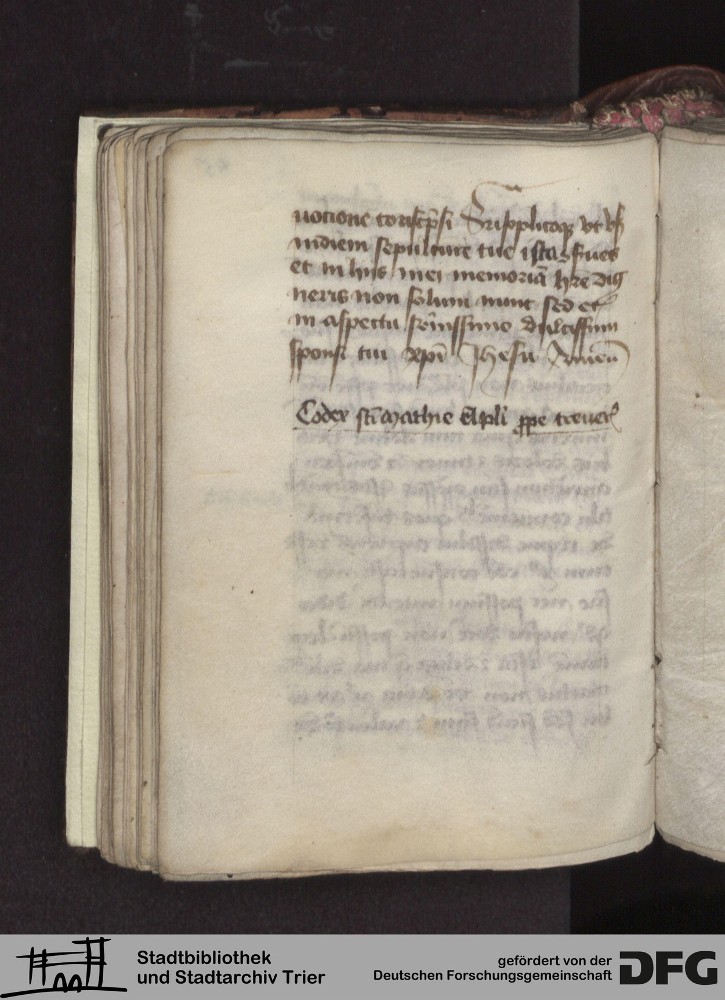 uotione conscp̄si Supplicoq; vt vsq;
in diem sepulture tue
et in hijs mei memoriā h̄re dig
neris non solum nunc sed et
in aspectu dulcissimi
sponsi tui xp̄i Jhesu Amen
Codex sc̄i Mathie Ap̄li ꝓpe treuer̄
Stadtbibliothek
und Stadtarchiv Trier
gefördert von der
Deutschen Forschungsgemeinschaft
DFG